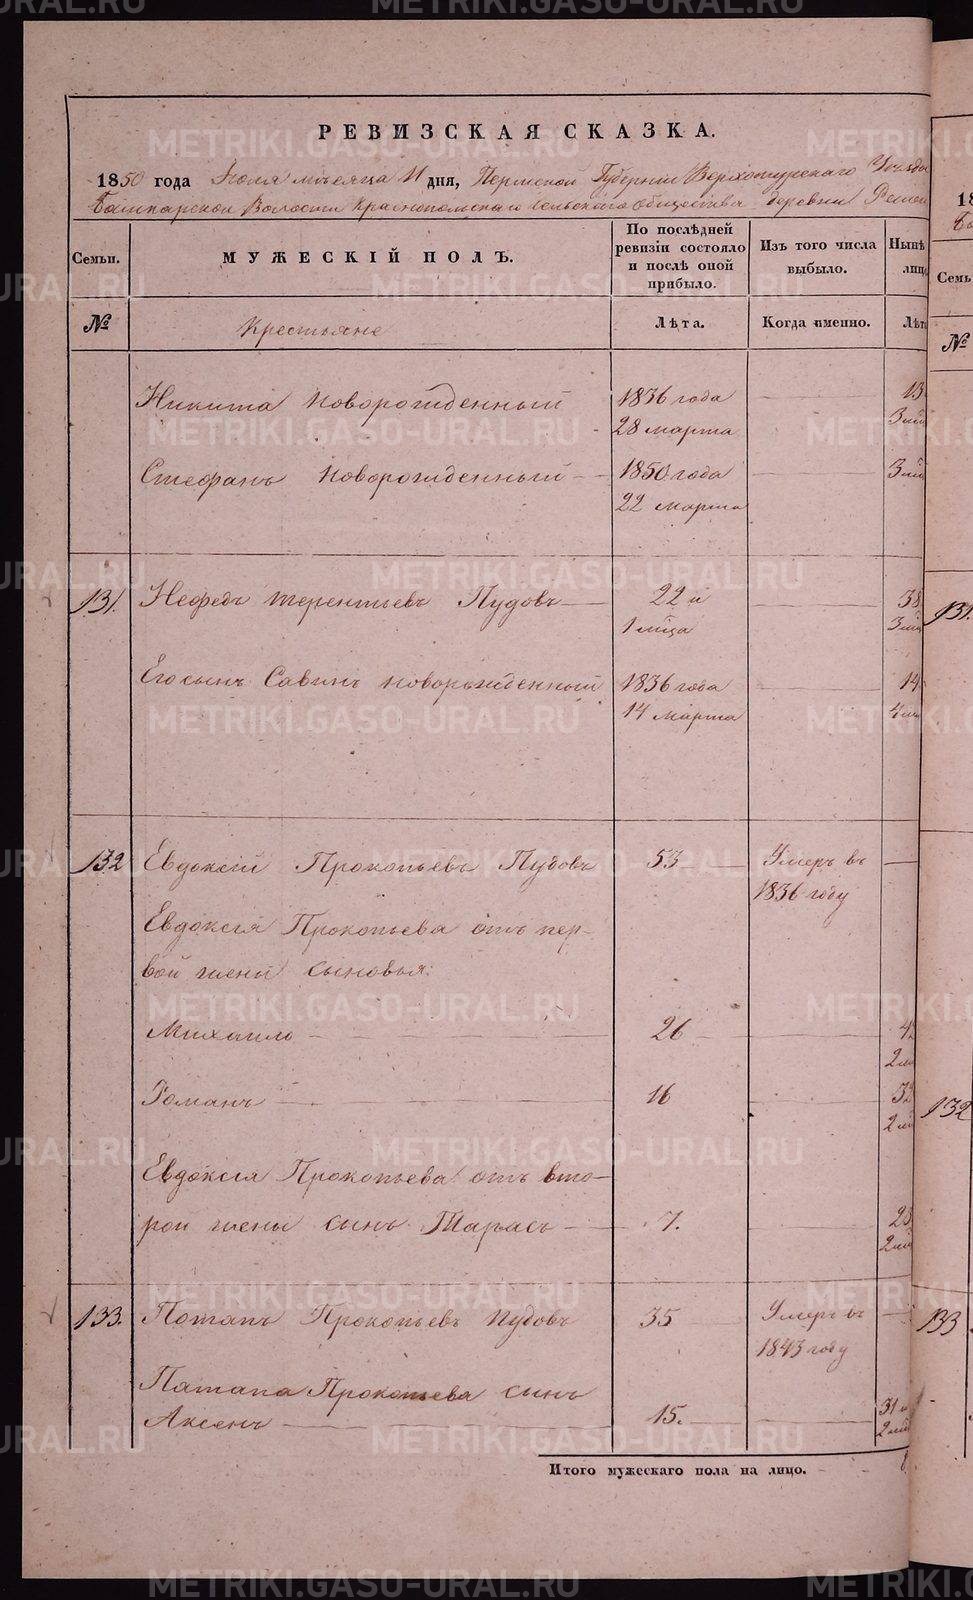 РЕВИЗСКАЯ СКАЗКА.
1850 года Іюля мѣсяца 11 дня, Пермской Губерніи Верхотурскаго Уѣзда
Башкарской Волости Краснопольскаго Сельскаго Общества деревни
Семьи.
МУЖЕСКІЙ ПОЛЪ.
По послѣдней ревизіи состояло и послѣ оной прибыло.
Изъ того числа выбыло.
Нынѣ лицо
№
Крестьяне
Лѣта.
Когда именно.
Лѣта
Никита новорожденный 1836 года 13
28 марта 3
Стефанъ новорожденный 1850 года 3
22 марта
131. Нефедъ Терентьевъ Пудовъ 22 и 38
1 мѣца 3
Его сынъ Савинъ новорожденный 1836 года 14
14 марта 4
132 Евдоксій Прокопьевъ Пудовъ 53 Умеръ въ
1836 году
Евдоксія Прокопьева отъ пер-
вой жены сыновья:
Михаило 26
2
Романъ 16 32
2
Евдоксія Прокопьева отъ вто-
рой жены сынъ Тарасъ 7. 23
2
133. Потапъ Прокопьевъ Пудовъ 35 Умеръ въ
1843 году
Патапа Прокопьева сынъ
Аксенъ 15. 31 и
2
Итого мужескаго пола на лицо.
18
Семь
№
131.
132
133
METRIKI.GASO-URAL.RU